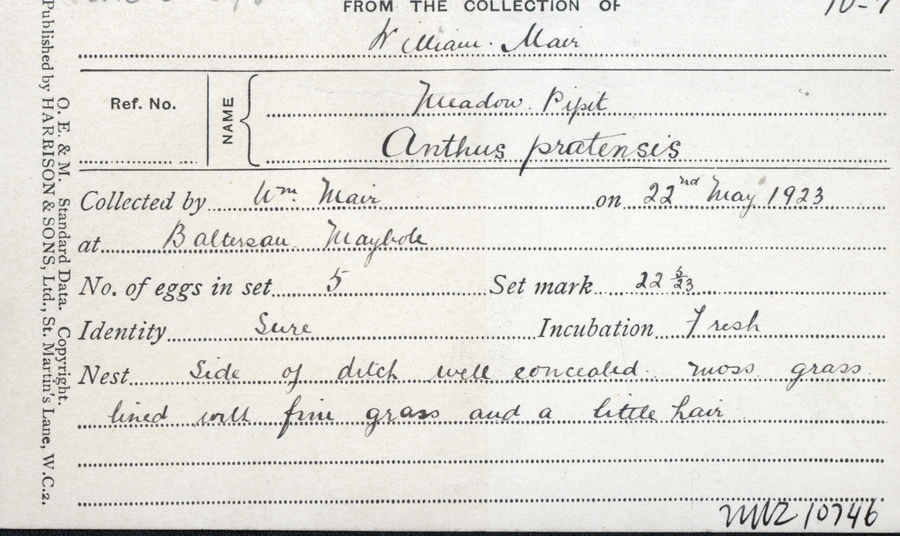 FROM THE COLLECTION OF
William. Mair
Ref. No.
NAME
Meadow. Pipit
Anthus pratensis
Collected by Wm. Mair on 22nd May 1923
at Baltersan Maybole
No. of eggs in set 5 Set mark 22 5/23
Identity Sure Incubation Fresh
Nest Side of ditch well concealed. moss grass
lined with fine grass and a little hair
O. E. & M. Standard Data. Copyright.
Published by HARRISON & SONS, Ltd., St. Martin's Lane, W.C.2.
10746